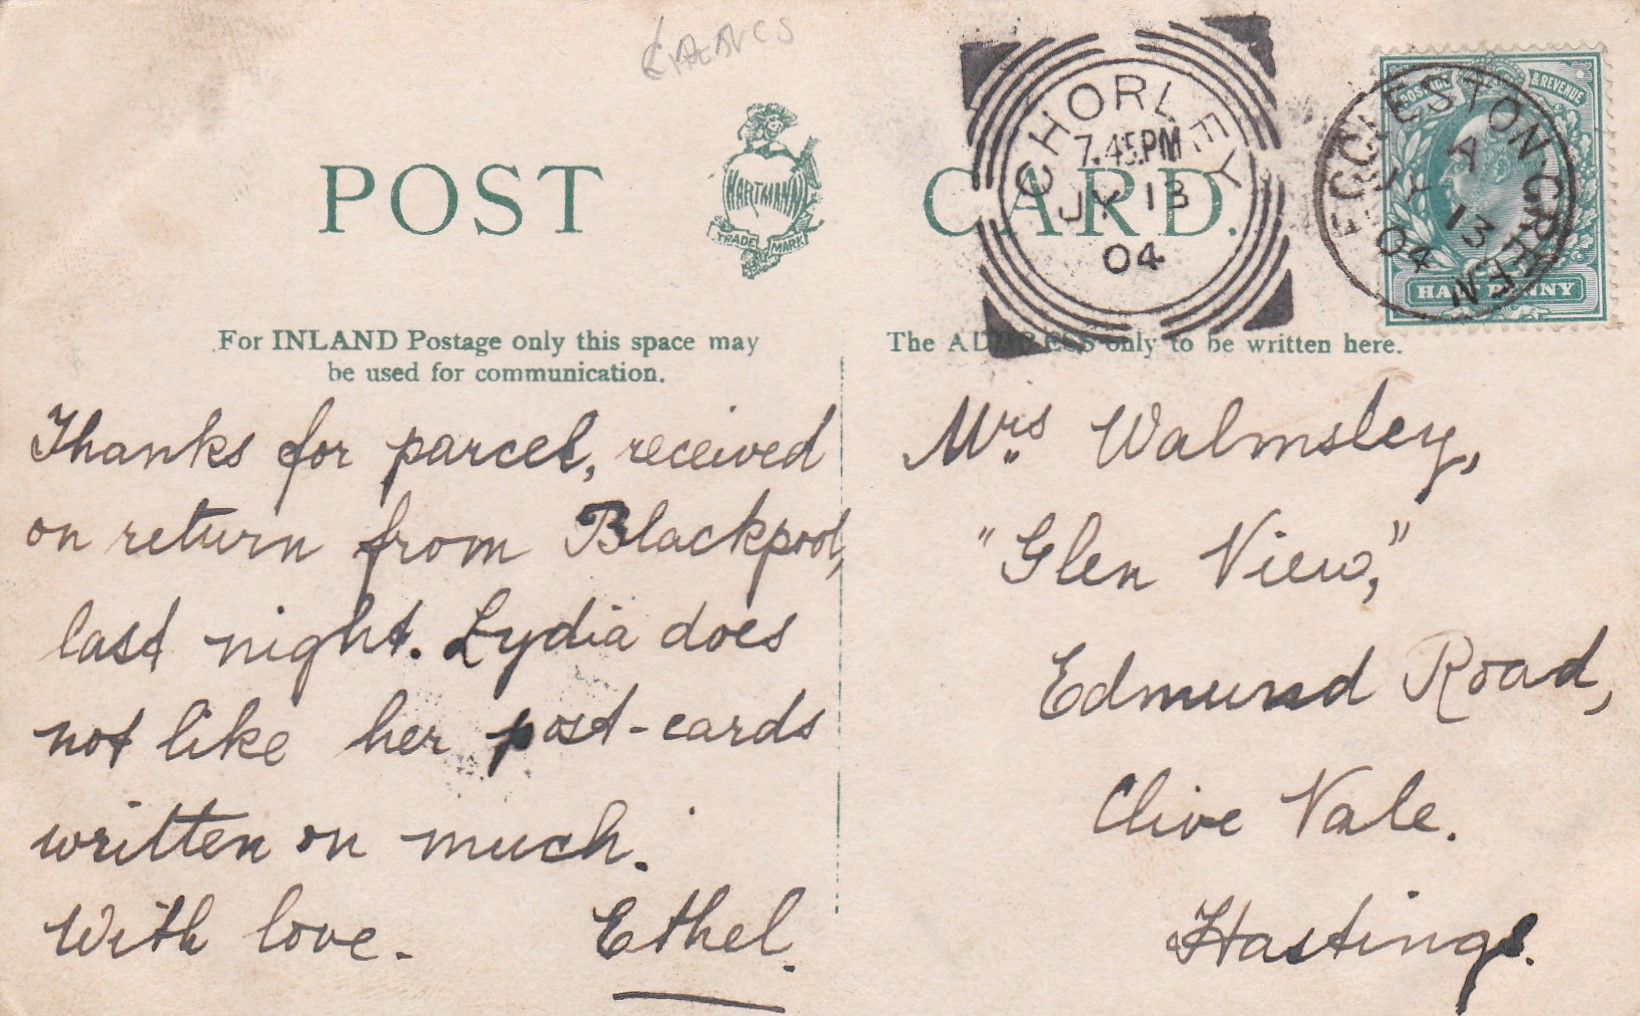 POST CARD.
HARTMANN
TRADE MARK
CHORLEY
7.45PM
JY 13
04
ECCLESTON GREEN
A
JY 13
04
POSTAGE & REVENUE
HALF PENNY
For INLAND Postage only this space may
be used for communication.
The ADDRESS only to be written here.
Thanks for parcel, received
on return from Blackpool,
last night. Lydia does
not like her post-cards
written on much.
With love. Ethel.
Mrs Walmsley,
"Glen View,"
Edmund Road,
Clive Vale.
Hastings.